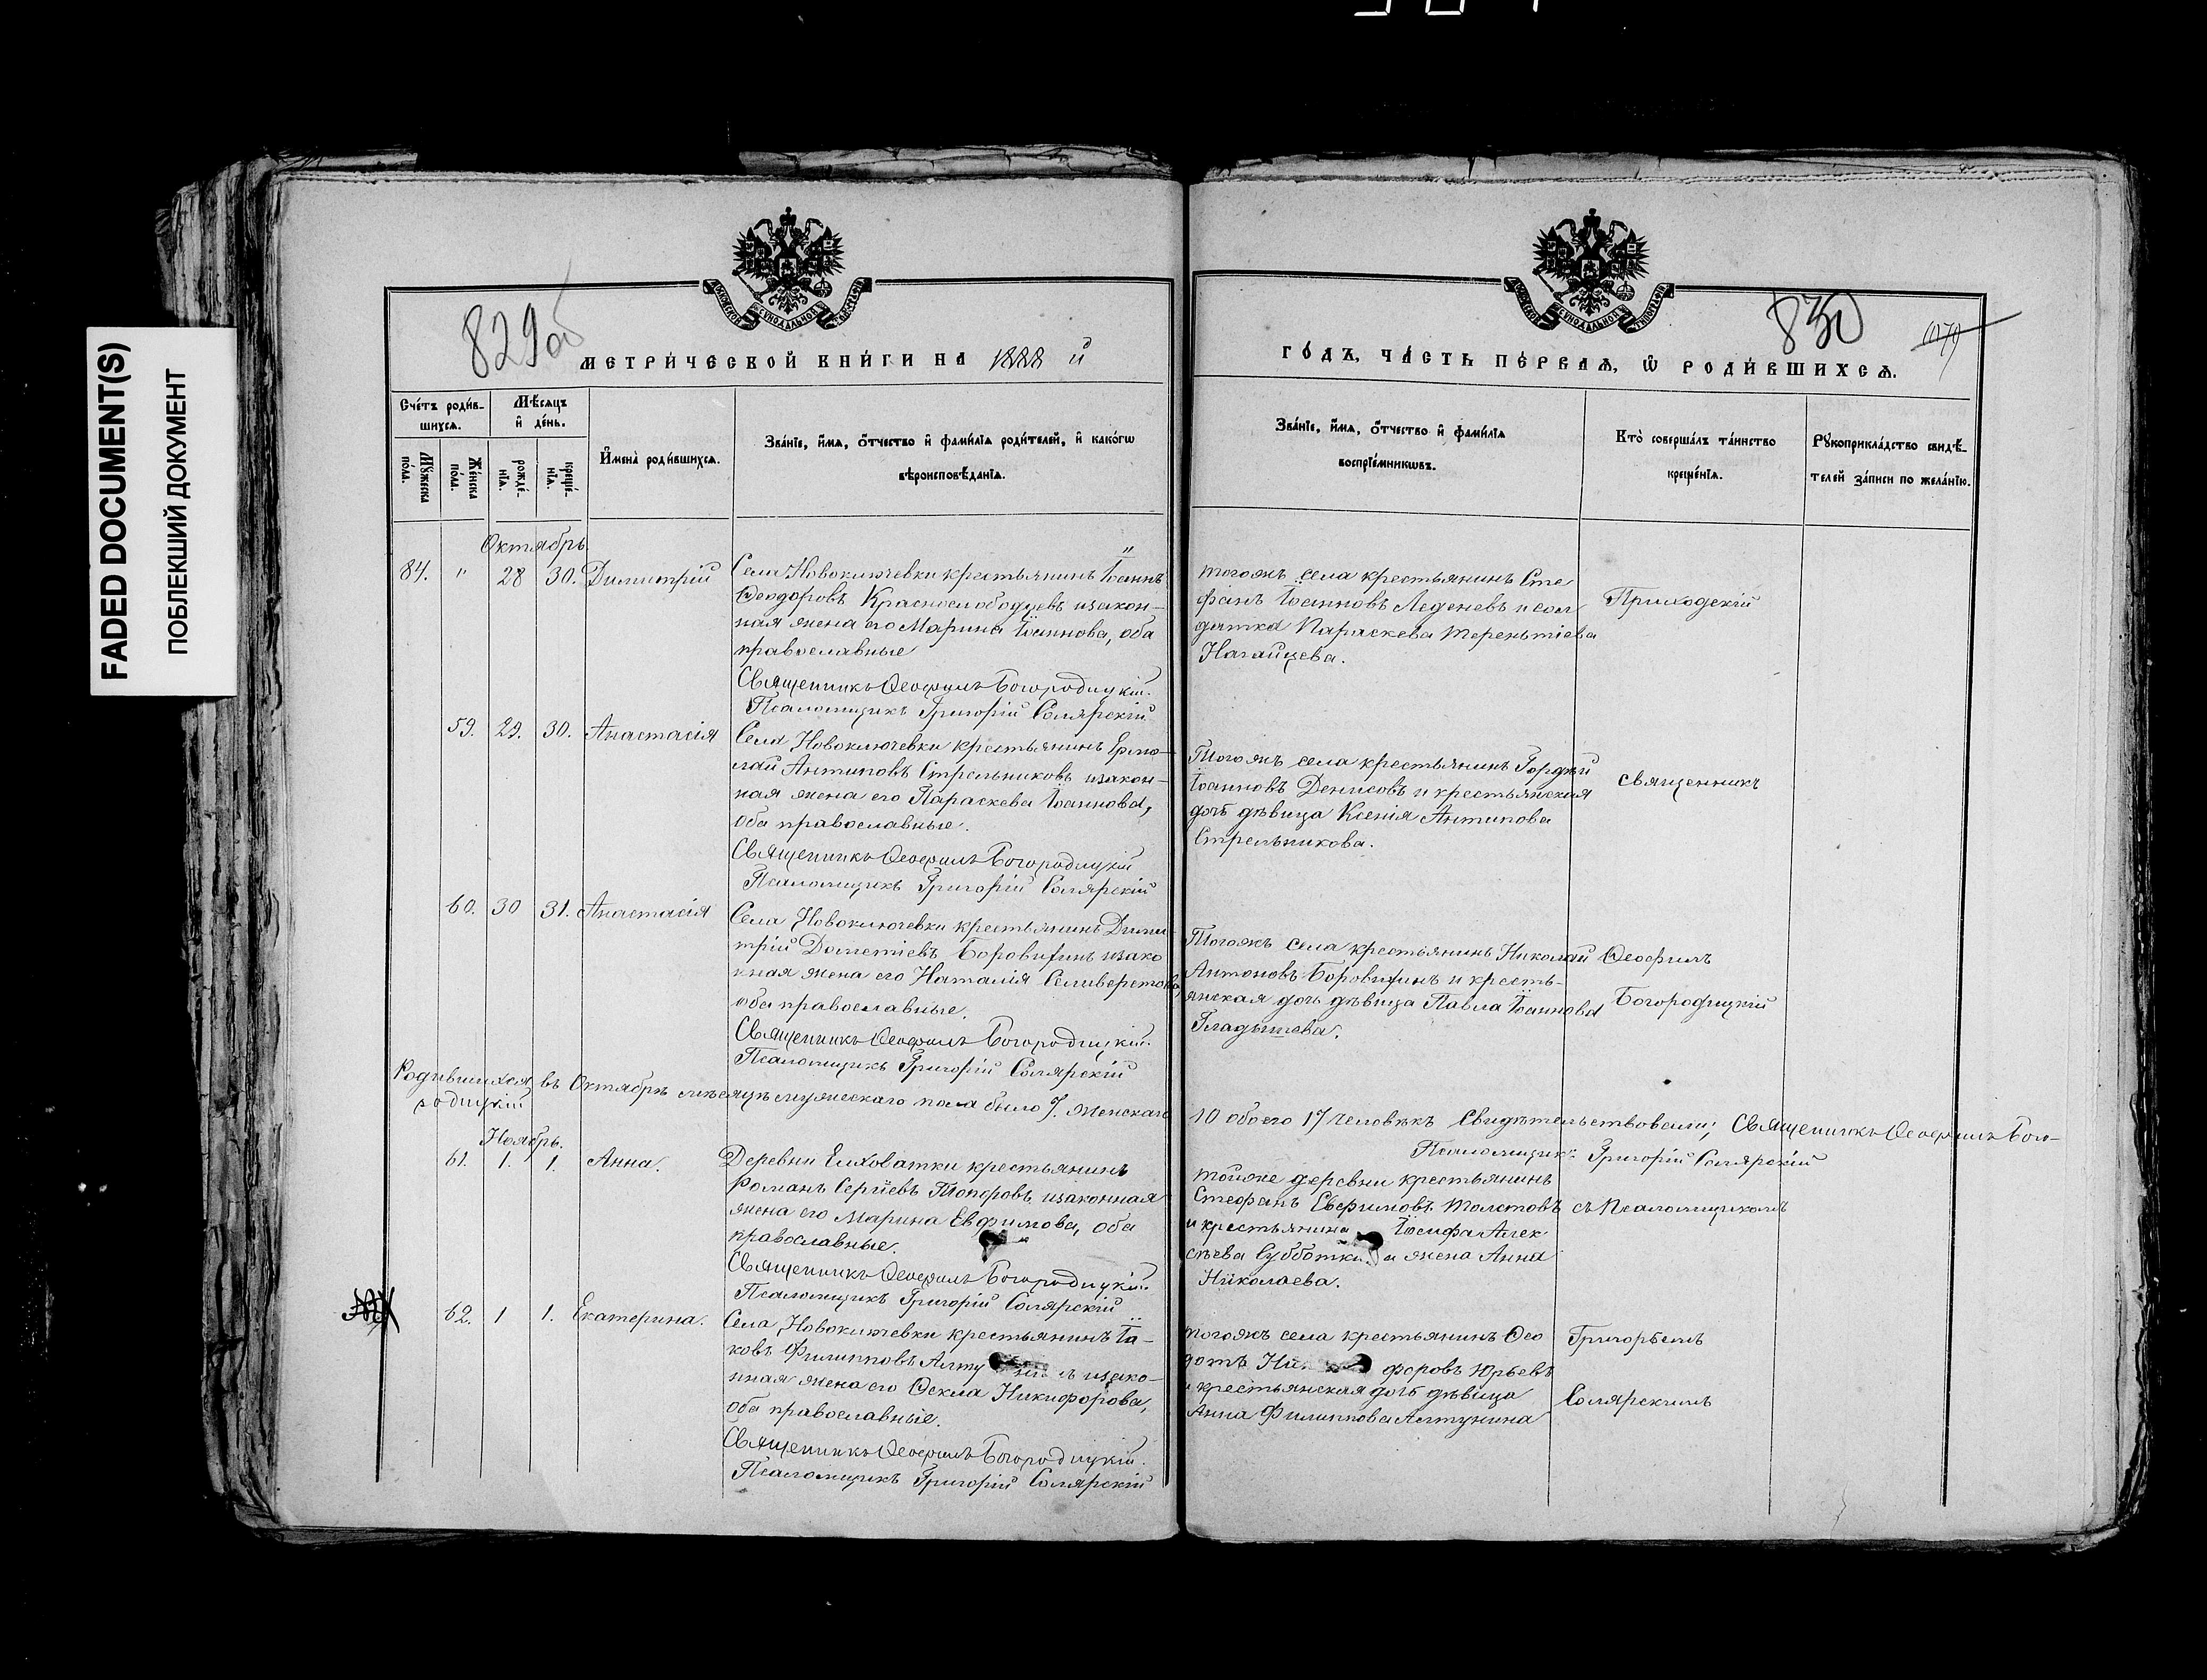 FADED DOCUMENT(S)
ПОБЛЕКШИЙ ДОКУМЕНТ
829об
МЕТРИЧЕСКОЙ КНИГИ НА 1888 й
Счётъ роди́в-
шихсѧ.
Мѣ́сѧцъ
и҆ де́нь.
Мꙋ́жеска
по́ла.
Же́нска
по́ла.
рожде́-
нїѧ.
креще́-
нїѧ.
И҆мена̀ роди́вшихсѧ.
Зва́нїе, и҆́мѧ, ѻ҆́тчество и҆ фами́лїѧ роди́телей, и҆ како́гѡ
вѣроисповѣ́данїѧ.
Октябрь.
84. " 28 30. Димитрій
Села Новоключевки крестьянинъ Іоаннъ
Ѳеодоровъ Краснослободцевъ изакон-
ная жена его Марина Іоаннова, оба
православные
Священникъ Ѳеофилъ Богородицкій.
Псаломщикъ Григорій Солярскій
59. 29. 30. Анастасія
Села Новоключевки крестьянинъ Ермо-
лай Антиповъ Стрельниковъ изакон-
ная жена его Параскева Іоаннова,
оба православные.
Священникъ Ѳеофилъ Богородицкій
Псаломщикъ Григорій Солярскій
60. 30 31. Анастасія
Села Новоключевки крестьянинъ Дими-
трій Дометіевъ изако
нная жена его Наталія Селиверстова,
оба православные.
Священникъ Ѳеофилъ Богородицкій.
Псаломщикъ Григорій Солярскій
Родившихся въ Октябрѣ мѣсяцѣ мужескаго пола было 7. женскаго
родицкій
Ноябрь.
61. 1. 1. Анна.
Деревни Елховатки крестьянинъ
Романъ Сергіевъ изаконная
жена его Марина Евфимова, оба
православные.
Священникъ Ѳеофилъ Богородицкій.
Псаломщикъ Григорій Солярскій
62. 1 1. Екатерина.
Села Новоключевки крестьянинъ Іа-
ковъ Филипповъ Алту изако-
нная жена его Ѳекла Никифорова,
оба православные.
Священникъ Ѳеофилъ Богородицкій.
Псаломщикъ Григорій Солярскій
830
1079
ГО́ДЪ, ЧА́СТЬ ПЕ́РВАѦ, Ѡ҆ РОДИ́ВШИХСѦ.
Зва́нїе, и҆́мѧ, ѻ҆́тчество и҆ фами́лїѧ
воспрїе́мникѡвъ.
Кто̀ соверша́лъ та́инство
креще́нїѧ.
Рꙋкоприкла́дство свидѣ́-
телей за́писи по жела́нїю.
тогожъ села крестьянинъ Сте
фанъ Іоанновъ Леденевъ и сол
датка Параскева Терентіева
Нагайцева.
Приходскій
Тогожъ села крестьянинъ Гордѣй
Іоанновъ Денисовъ и крестьянская
дочь дѣвица Ксенія Антипова
Стрельникова.
священникъ
Тогожъ села крестьянинъ Николай
Антоновъ и кресть-
янская дочь дѣвица Павла Іоаннова
Гладышева.
Ѳеофилъ
Богородицкій
10 обоего 17 человѣкъ Свидѣтельствовали; Священникъ Ѳеофилъ Бого-
Псаломщикъ Григорій Солярскій
тойже деревни крестьянинъ
Стефанъ Евфимовъ Толстовъ
и крестьянина Іосифа Алек-
сѣева Субботки а жена Анна
Николаева.
съ Псаломщикомъ
тогожъ села крестьянинъ Ѳео
дотъ Ни форовъ Юрьевъ
и крестьянская дочь дѣвица
Анна Филиппова Алтунина
Григорьемъ
Солярскимъ